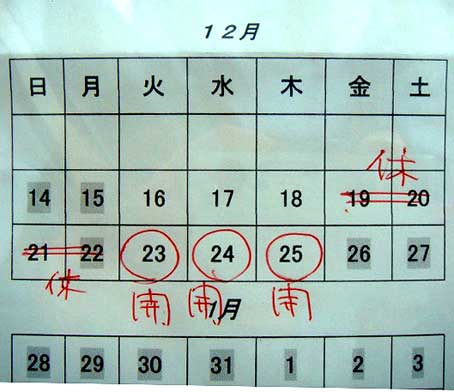 12月
日 月 火 水 木 金 土
休
14 15 16 17 18 19 20
21 22 23 24 25 26 27
休 開 開 開
1月
28 29 30 31 1 2 3